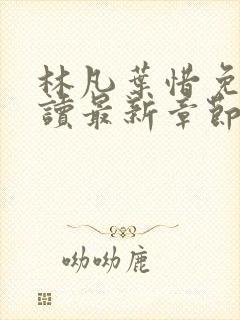 林凡葉惜免
讀最新章節
呦呦鹿